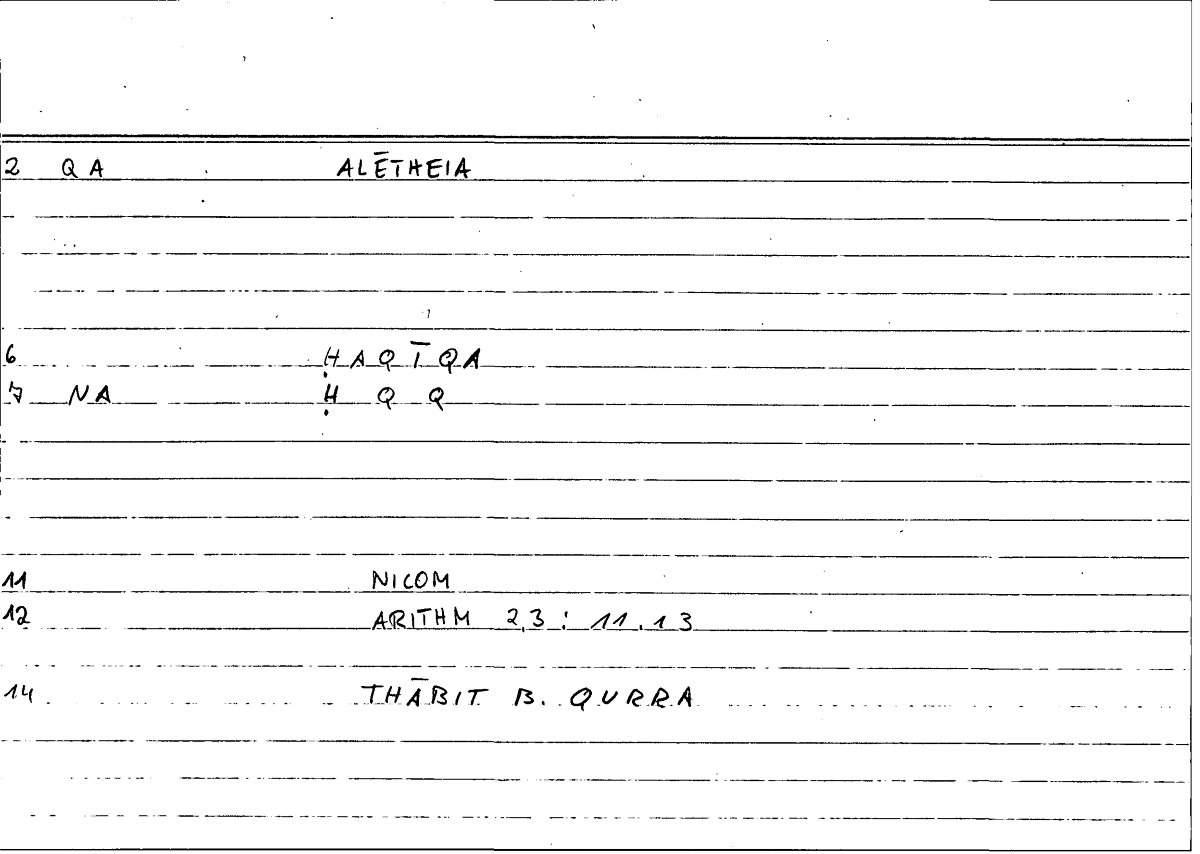 2 QA ALĒTHEIA
6 ḤAQĪQA
7 NA Ḥ Q Q
11 NICOM
12 ARITHM 2,3: 11.13
14 THĀBIT B. QURRA